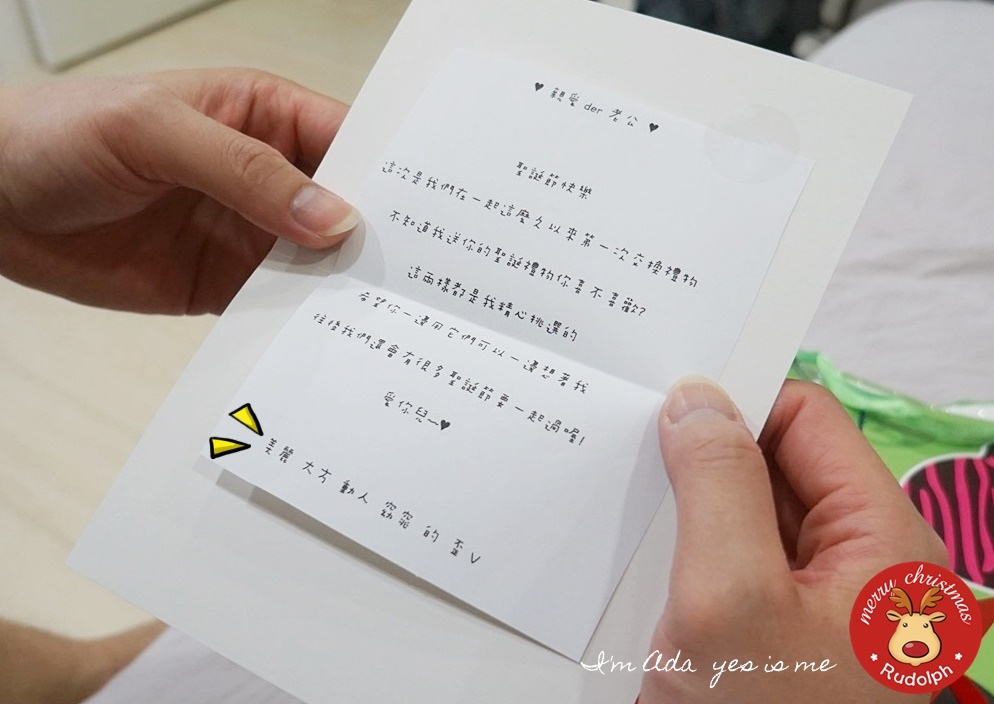 ♥ 親愛 der 老公 ♥
聖誕節快樂
這次是我們在一起這麼久以來第一次交換禮物
不知道我送你的聖誕禮物你喜不喜歡?
這兩樣都是我精心挑選的
希望你一邊用它們可以一邊想著我
往後我們還會有很多聖誕節要一起過喔!
愛你兒~♥
美麗 大方 動人 窈窕 的 歪V
I'm Ada yes is me
merry christmas
Rudolph